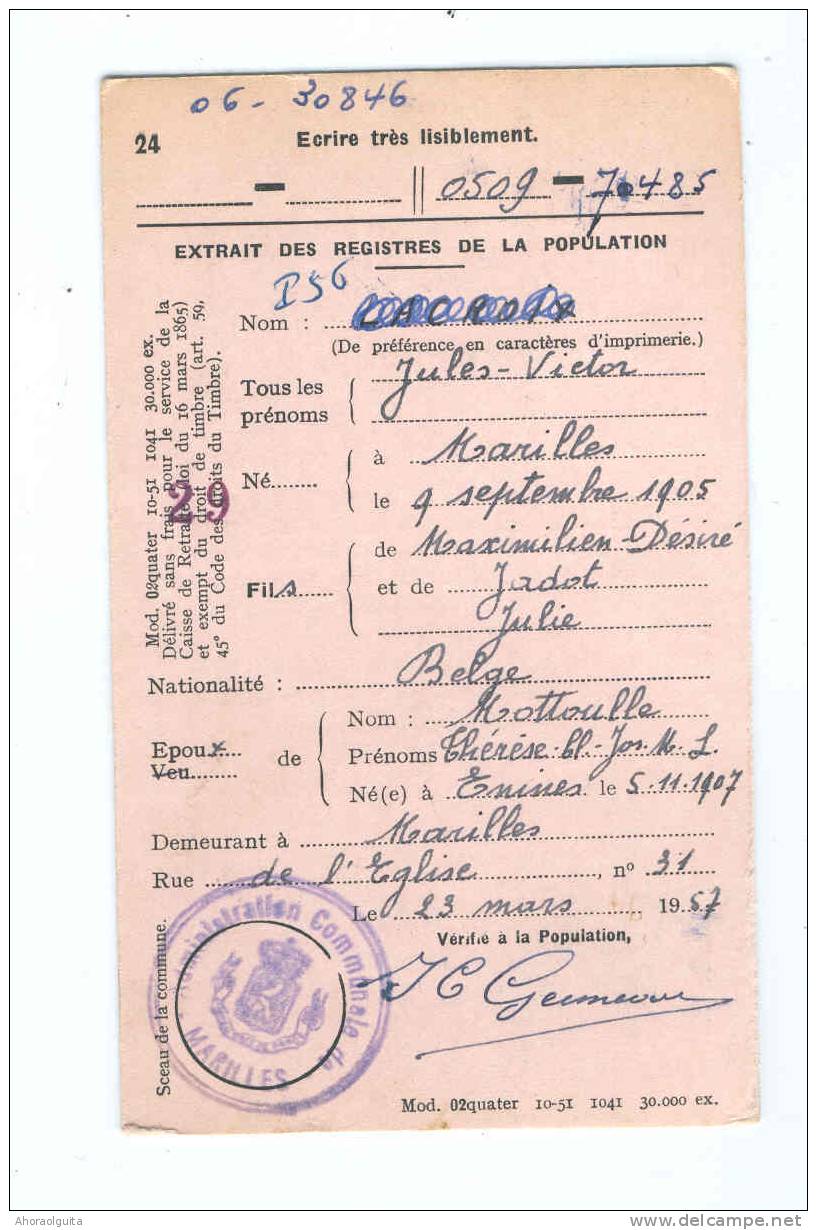 06 - 30846
24 Ecrire très lisiblement.
0509 - 70485
EXTRAIT DES REGISTRES DE LA POPULATION
I56
Nom : LACROIX
(De préférence en caractères d'imprimerie.)
Tous les prénoms Jules-Victor
Né à Marilles
le 9 septembre 1905
Fils de Maximilien-Désiré
et de Jadot
Julie
Nationalité : Belge
Epoux de Nom : Mottoulle
Veu
Prénoms Thérèse-Cl-Jos. M. L.
Né(e) à Enines le 5.11.1907
Demeurant à Marilles
Rue de l'Eglise, n° 31
Le 23 mars 1957
Vérifié à la Population,
Sceau de la commune.
Administration Communale de
MARILLES
Mod. 02quater 10-51 1041 30.000 ex.
Mod. 02quater 10-51 1041 30.000 ex.
Délivré sans frais pour le service de la
Caisse de Retraite (loi du 16 mars 1865)
et exempt du droit de timbre (art. 59,
45° du Code des droits du Timbre).
29
Ahoraolguita
delcampe.net